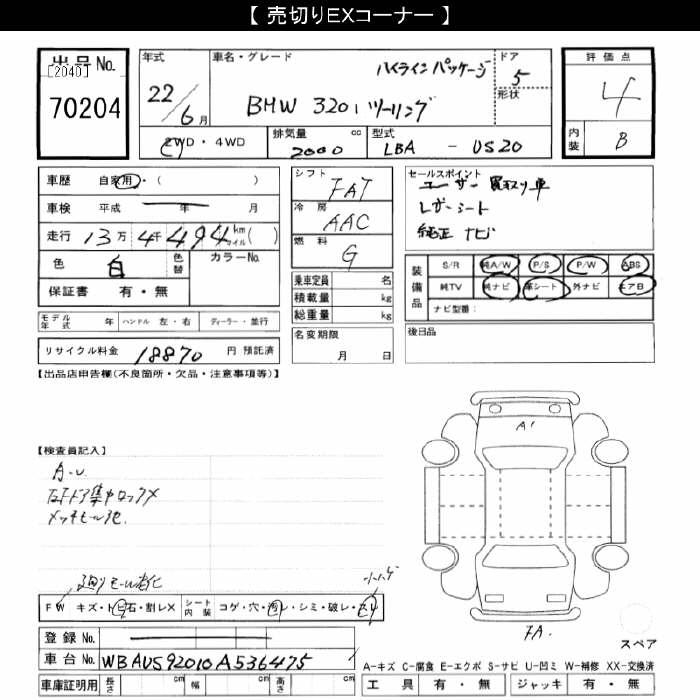 【 売切りEXコーナー 】
出品No.
[2040]
70204
年式
22/6月
車名・グレード
ハイラインパッケージ
BMW 320i ツーリング
ドア
5
形状
評価点
4
内装
B
2WD・4WD
排気量 cc
2000
型式
LBA - US20
車歴 自家用・( )
車検 平成 年 月
走行 13万 4千494 km マイル( )
色 白 色替
カラーNo.
保証書 有・無
シフト
FAT
冷房
AAC
燃料
G
乗車定員 名
積載量 kg
総重量 kg
セールスポイント
ユーザー買取り車
レザーシート
純正ナビ
装備品
S/R 純A/W P/S P/W ABS
純TV 純ナビ 革シート 外ナビ エアB
ナビ型番:
モデル年式 年 ハンドル 左・右 ディーラー・並行
名変期限
月 日
後日品
リサイクル料金 18870 円 預託済
【出品店申告欄(不良箇所・欠品・注意事項等)】
A'
【検査員記入】
A・U
右F ドア集中ロック✕
メッキモール池
廻りモール劣化
小ハゲ
FW キズ・トビ石・割レX シート内装 コゲ・穴・汚レ・シミ・破レ・スレ
登録No.
車台No. WBAUS92010A536475
FA.
スペア
A-キズ C-腐食 E-エクボ S-サビ U-凹ミ W-補修 XX-交換済
車庫証明用 長さ cm 幅 cm 高さ cm
工具 有・無 ジャッキ 有・無